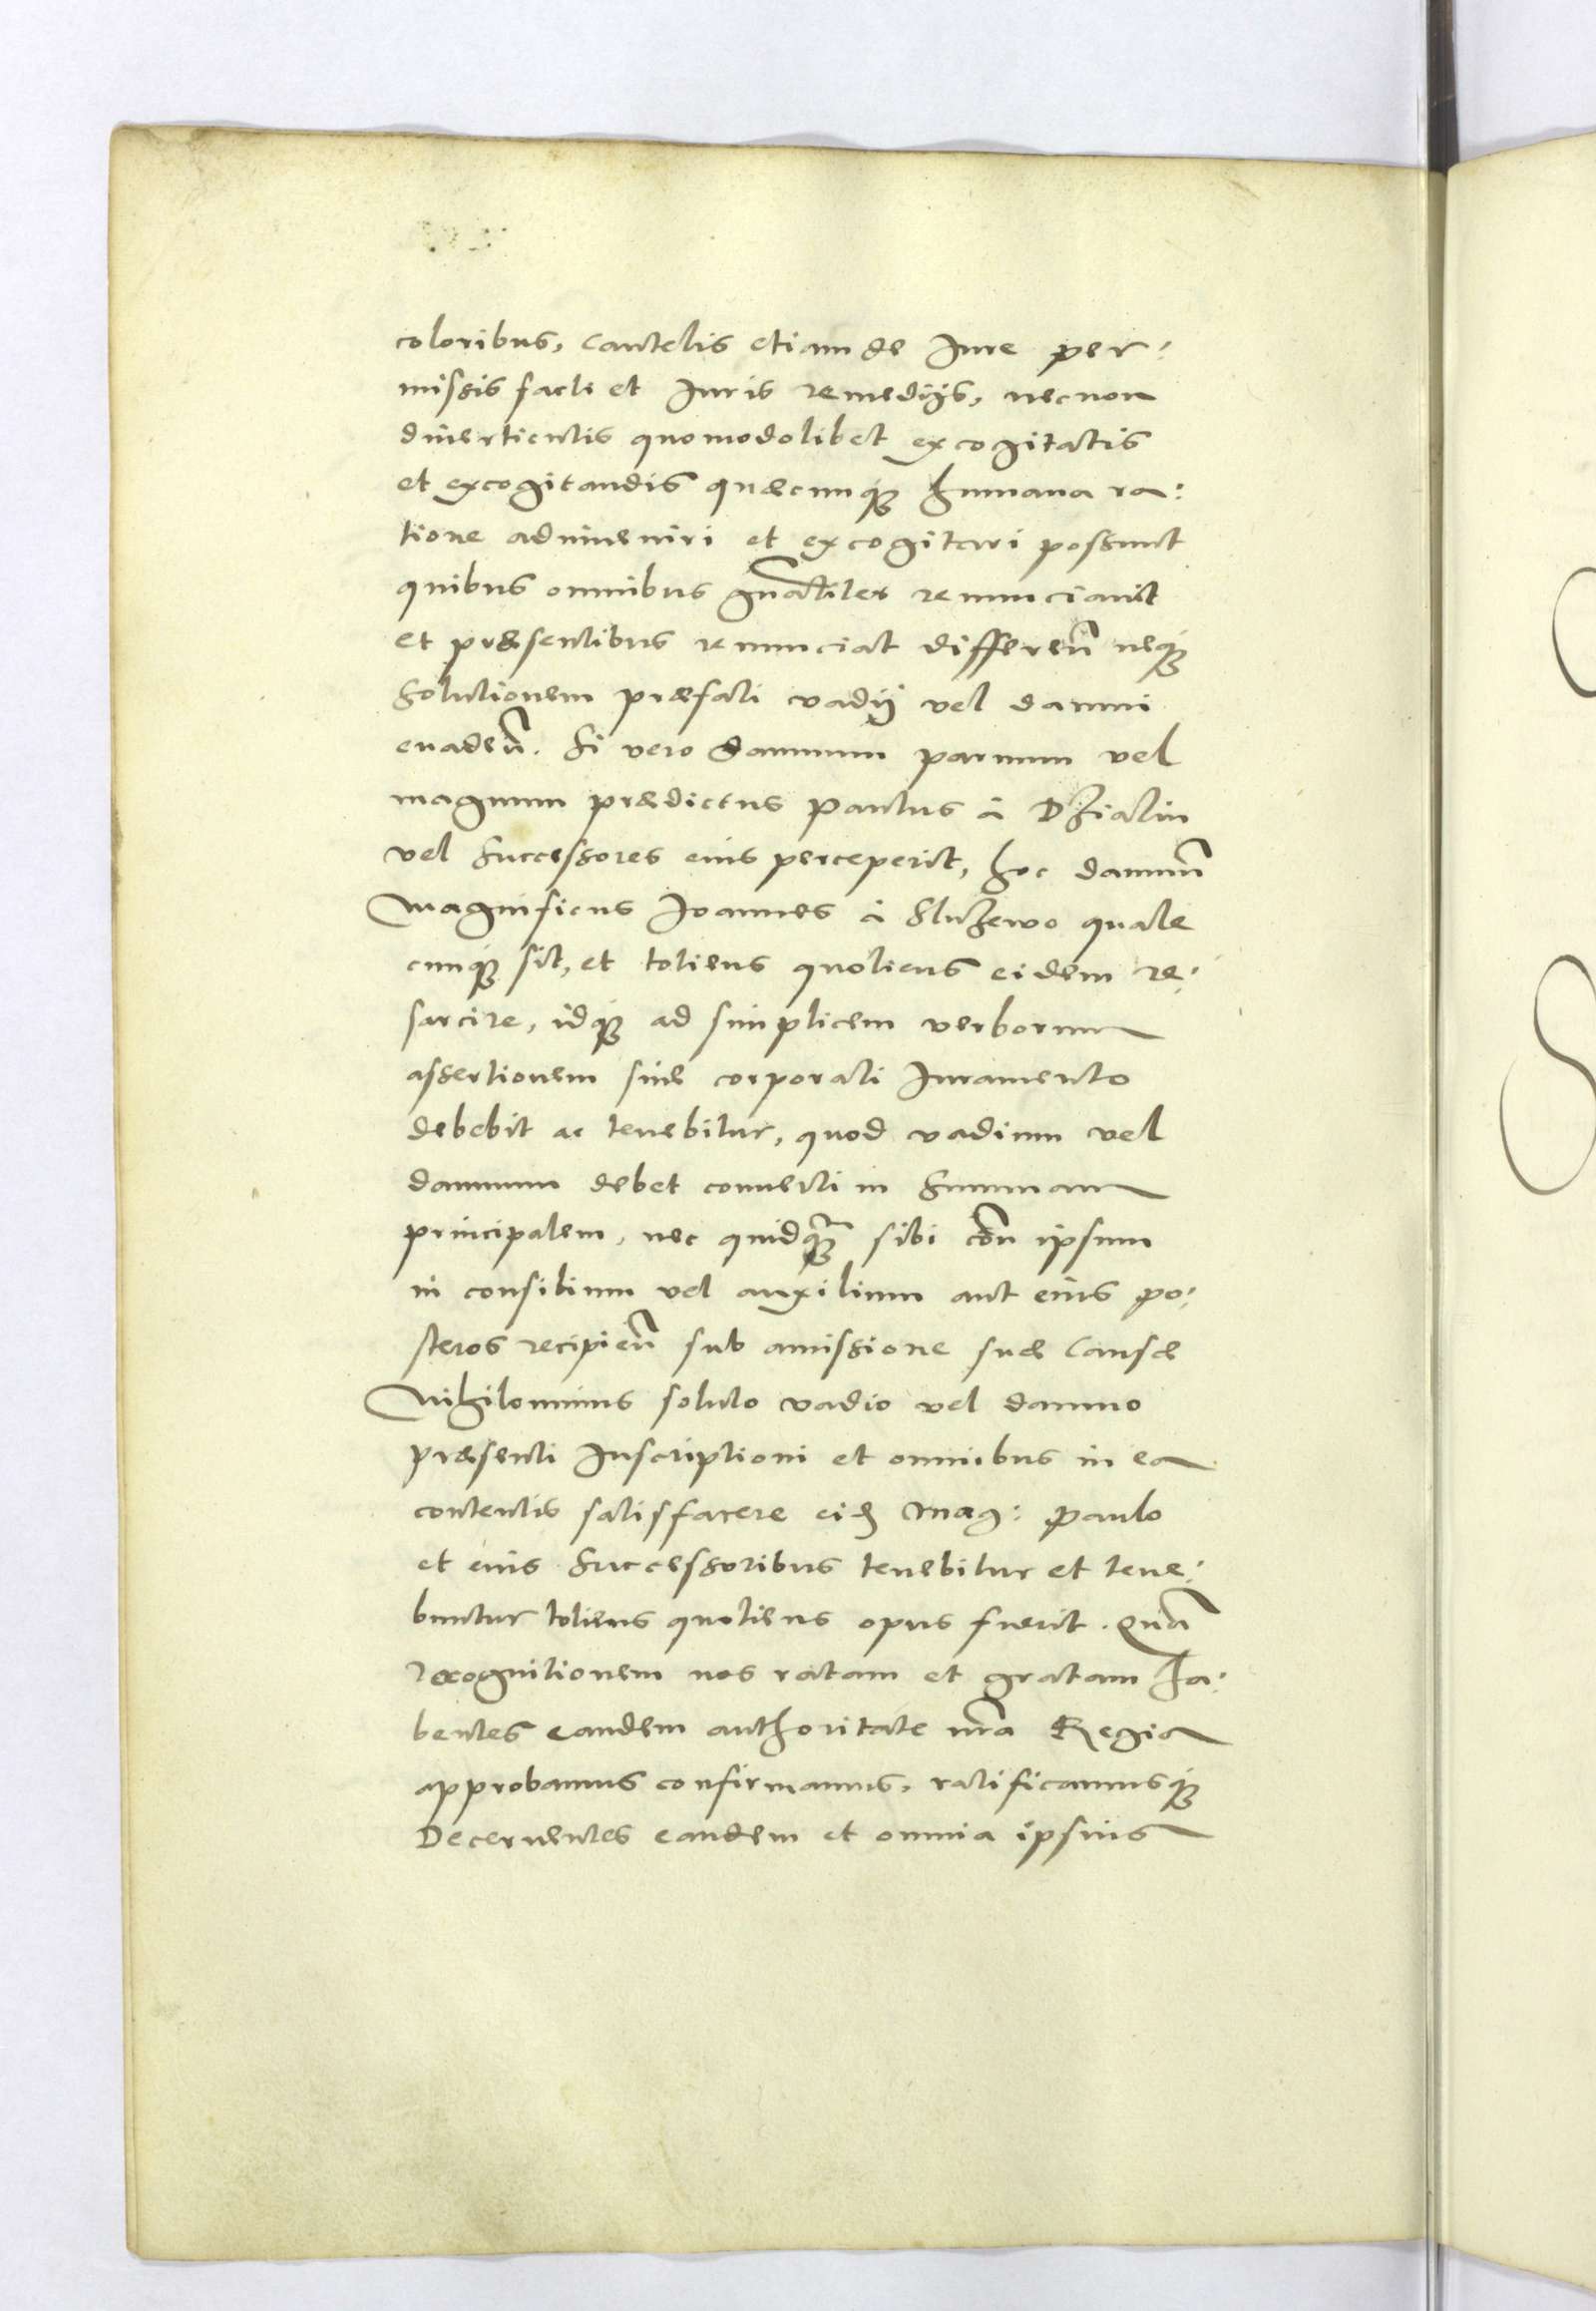 coloribus, Cautelis etiam de Jure per:
missis facti et Juris remedijs, necnon
diverticulis quomodolibet excogitatis
et excogitandis quæcunq3 humana ra:
tione adinveniri et excogitari possunt
quibus omnibus gñaliter renunciavit
et præsentibus renunciat differeñ neq3
Solutionem præfati vadij vel damni
evadeñ. Si vero damnum parvum vel
magnum prædictus Paulus à Dzialin
vel Successores eius perceperit, hoc damnũ
Magnificus Joannes à Sluzewo quale
cunq3 sit, et totiens quotiens eidem re:
sarcire, idq3 ad simplicem verborum
assertionem sine corporali Juramento
debebit ac tenebitur, quod vadium vel
damnum debet converti in Summam
principalem, nec quidq3 sibi coñ ipsum
in consilium vel auxilium aut eius po:
steros recipieñ sub amissione suæ Causæ
Nihilominus soluto vadio vel damno
præsenti Inscriptioni et omnibus in ea
contentis satisfacere eid Mag: Paulo
et eius Successoribus tenebitur et tene:
buntur totiens quotiens opus fuerit. Quã
recognitionem nos ratam et gratam ha:
bentes eandem authoritate nr̃a Regia
approbamus confirmamus, ratificamusq3
Decernentes eandem et omnia ipsius